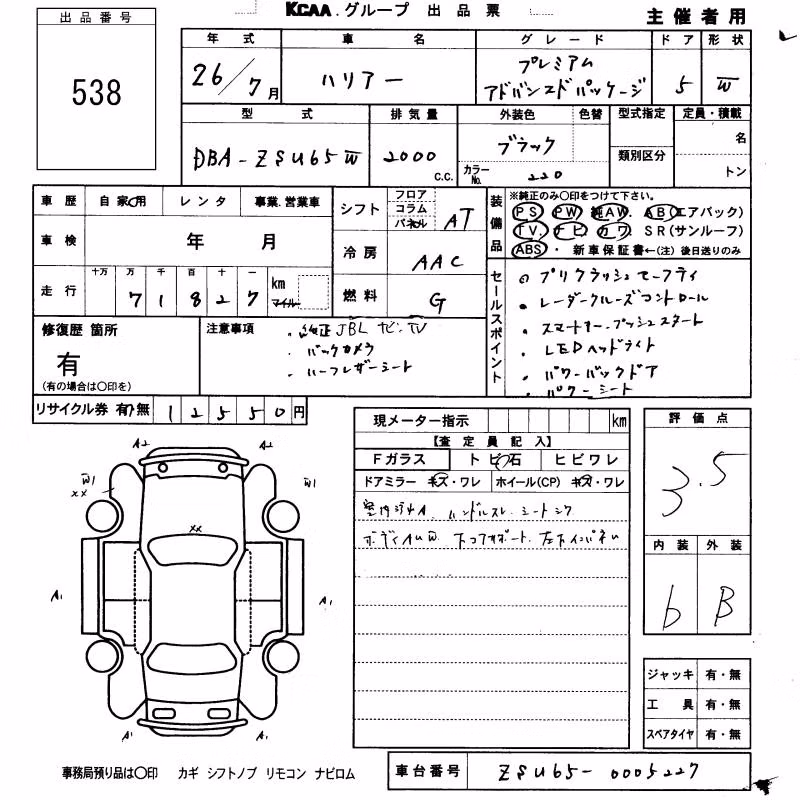 出品番号
538
KCAA.グループ 出品票
主催者用
年式 車名 グレード ドア 形状
26/7月 ハリアー プレミアム アドバンスドパッケージ 5 W
型式 排気量 外装色 色替 型式指定 定員・積載
DBA-ZSU65W 2000 C.C. ブラック 類別区分 名
カラーNo. 220 トン
車歴 自家用 レンタ 事業.営業車
車検 年 月
走行 十万 万 千 百 十 一
71827 km マイル
シフト フロア コラム パネル AT
冷房 AAC
燃料 G
装備品 ※純正のみ○印をつけて下さい。
PS PW 純AW. AB(エアバック)
TV. ナビ カワ SR(サンルーフ)
ABS ・ 新車保証書←(注) 後日送りのみ
セールスポイント
・プリクラッシュセーフティ
・レーダークルーズコントロール
・スマートキー.プッシュスタート
・LEDヘッドライト
・パワーバックドア
・パワーシート
修復歴 箇所
有
(有の場合は○印を)
注意事項
・純正JBLナビ.TV
・バックカメラ
・ハーフレザーシート
リサイクル券 有・無 12550円
現メーター指示 km
【査定員記入】
Fガラス トビ石 ヒビワレ
ドアミラー キズ・ワレ ホイール(CP) キズ・ワレ
ハンドルスレ シート
下コアサポート
評価点
3.5
内装 外装
b B
ジャッキ 有・無
工具 有・無
スペアタイヤ 有・無
A2 A2
W1 W1
XX
XX
A1 A1
A1
事務局預り品は○印 カギ シフトノブ リモコン ナビロム
車台番号 ZSU65-0005227